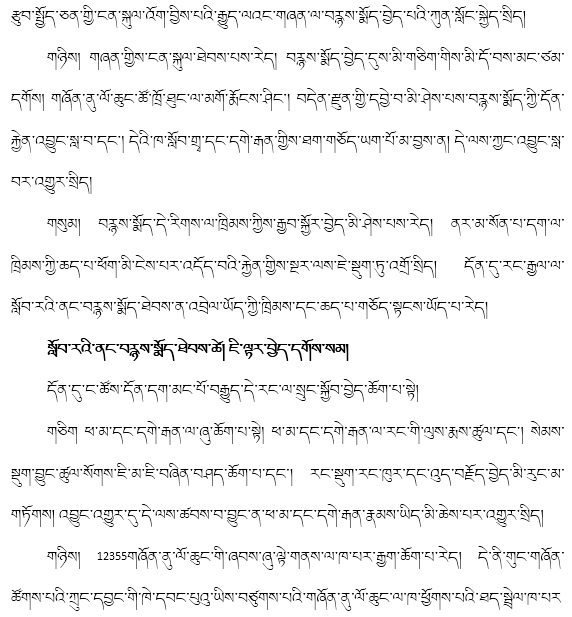 རྩུབ་སྤྱོད་ཅན་གྱི་ངན་སྐུལ་འོག་གྱིས་པའི་རྒྱུད་ལའང་གཞན་ལ་བརྙས་སྨོད་བྱེད་པའི་ཀུན་སློང་སྐྱེད་སྲིད།
གཉིས། གཞན་གྱིས་ངན་སྐུལ་ཐེབས་པས་རེད། བརྙས་སྨོད་བྱེད་དུས་མི་གཅིག་གིས་མི་དོ་བས་མང་ཙམ་
དགོས། གཞོན་ནུ་ལོ་ཆུང་ཚོ་ཁྲོ་ཐུང་ལ་མགོ་རྨོངས་ཤིང་། བདེན་རྫུན་གྱི་དབྱེ་བ་མི་ཤེས་པས་བརྙས་སྨོད་ཀྱི་དོན་
རྐྱེན་འབྱུང་སླ་བ་དང་། དེའི་ཁ་སློབ་གྲྭ་དང་དགེ་རྒན་གྱིས་ཐག་གཅོད་ཡག་པོ་མ་བྱས་ན། དེ་ལས་ཀྱང་འབྱུང་སླ་
བར་འགྱུར་སྲིད།
གསུམ། བརྙས་སྨོད་དེ་རིགས་ལ་ཁྲིམས་ཀྱིས་རྒྱབ་སྐྱོར་བྱེད་མི་ཤེས་པས་རེད། ནར་མ་སོན་པ་དག་ལ་
ཁྲིམས་ཀྱི་ཆད་པ་ཕོག་མི་ངེས་པར་འདོད་བའི་རྐྱེན་གྱིས་སྔར་ལས་ཇེ་སྡུག་ཏུ་འགྲོ་སྲིད། དོན་དུ་རང་རྒྱལ་ལ་
སློབ་རའི་ནང་བརྙས་སྨོད་ཐེབས་ན་འབྲེལ་ཡོད་ཀྱི་ཁྲིམས་དང་ཆད་པ་གཅོད་སྟངས་ཡོད་པ་རེད།
སློབ་རའི་ནང་བརྙས་སྨོད་ཐེབས་ཚེ། ཇི་ལྟར་བྱེད་དགོས་སམ།
དོན་དུ་ང་ཚོས་དོན་དག་མང་པོ་བརྒྱུད་དེ་རང་ལ་སྲུང་སྐྱོབ་བྱེད་ཆོག་པ་སྟེ།
གཅིག ཕ་མ་དང་དགེ་རྒན་ལ་ཞུ་ཆོག་པ་སྟེ། ཕ་མ་དང་དགེ་རྒན་ལ་རང་གི་ལུས་རྨས་ཚུལ་དང་། སེམས་
སྡུག་བྱུང་ཚུལ་སོགས་ཇི་མ་ཇི་བཞིན་བཤད་ཆོག་པ་དང་། རང་སྡུག་རང་ཁུར་དང་འུད་བརྗོད་བྱེད་མི་རུང་མ་
གཏོགས། འབྱུང་འགྱུར་དུ་དེ་ལས་ཚབས་བ་བྱུང་ན་ཕ་མ་དང་དགེ་རྒན་རྣམས་ཡིད་མི་ཆེས་པར་འགྱུར་སྲིད།
གཉིས། 12355གཞོན་ནུ་ལོ་ཆུང་གི་ཞབས་ཞུ་ལྟེ་གནས་ལ་ཁ་པར་རྒྱག་ཆོག་པ་རེད། དེ་ནི་གུང་གཞོན་
ཚོགས་པའི་ཀྲུང་དབྱང་གི་ཁེ་དབང་པུའུ་ཡིས་བཙུགས་པའི་གཞོན་ནུ་ལོ་ཆུང་ལ་ཁ་ཕྱོགས་པའི་ཐད་སྦྲེལ་ཁ་པར